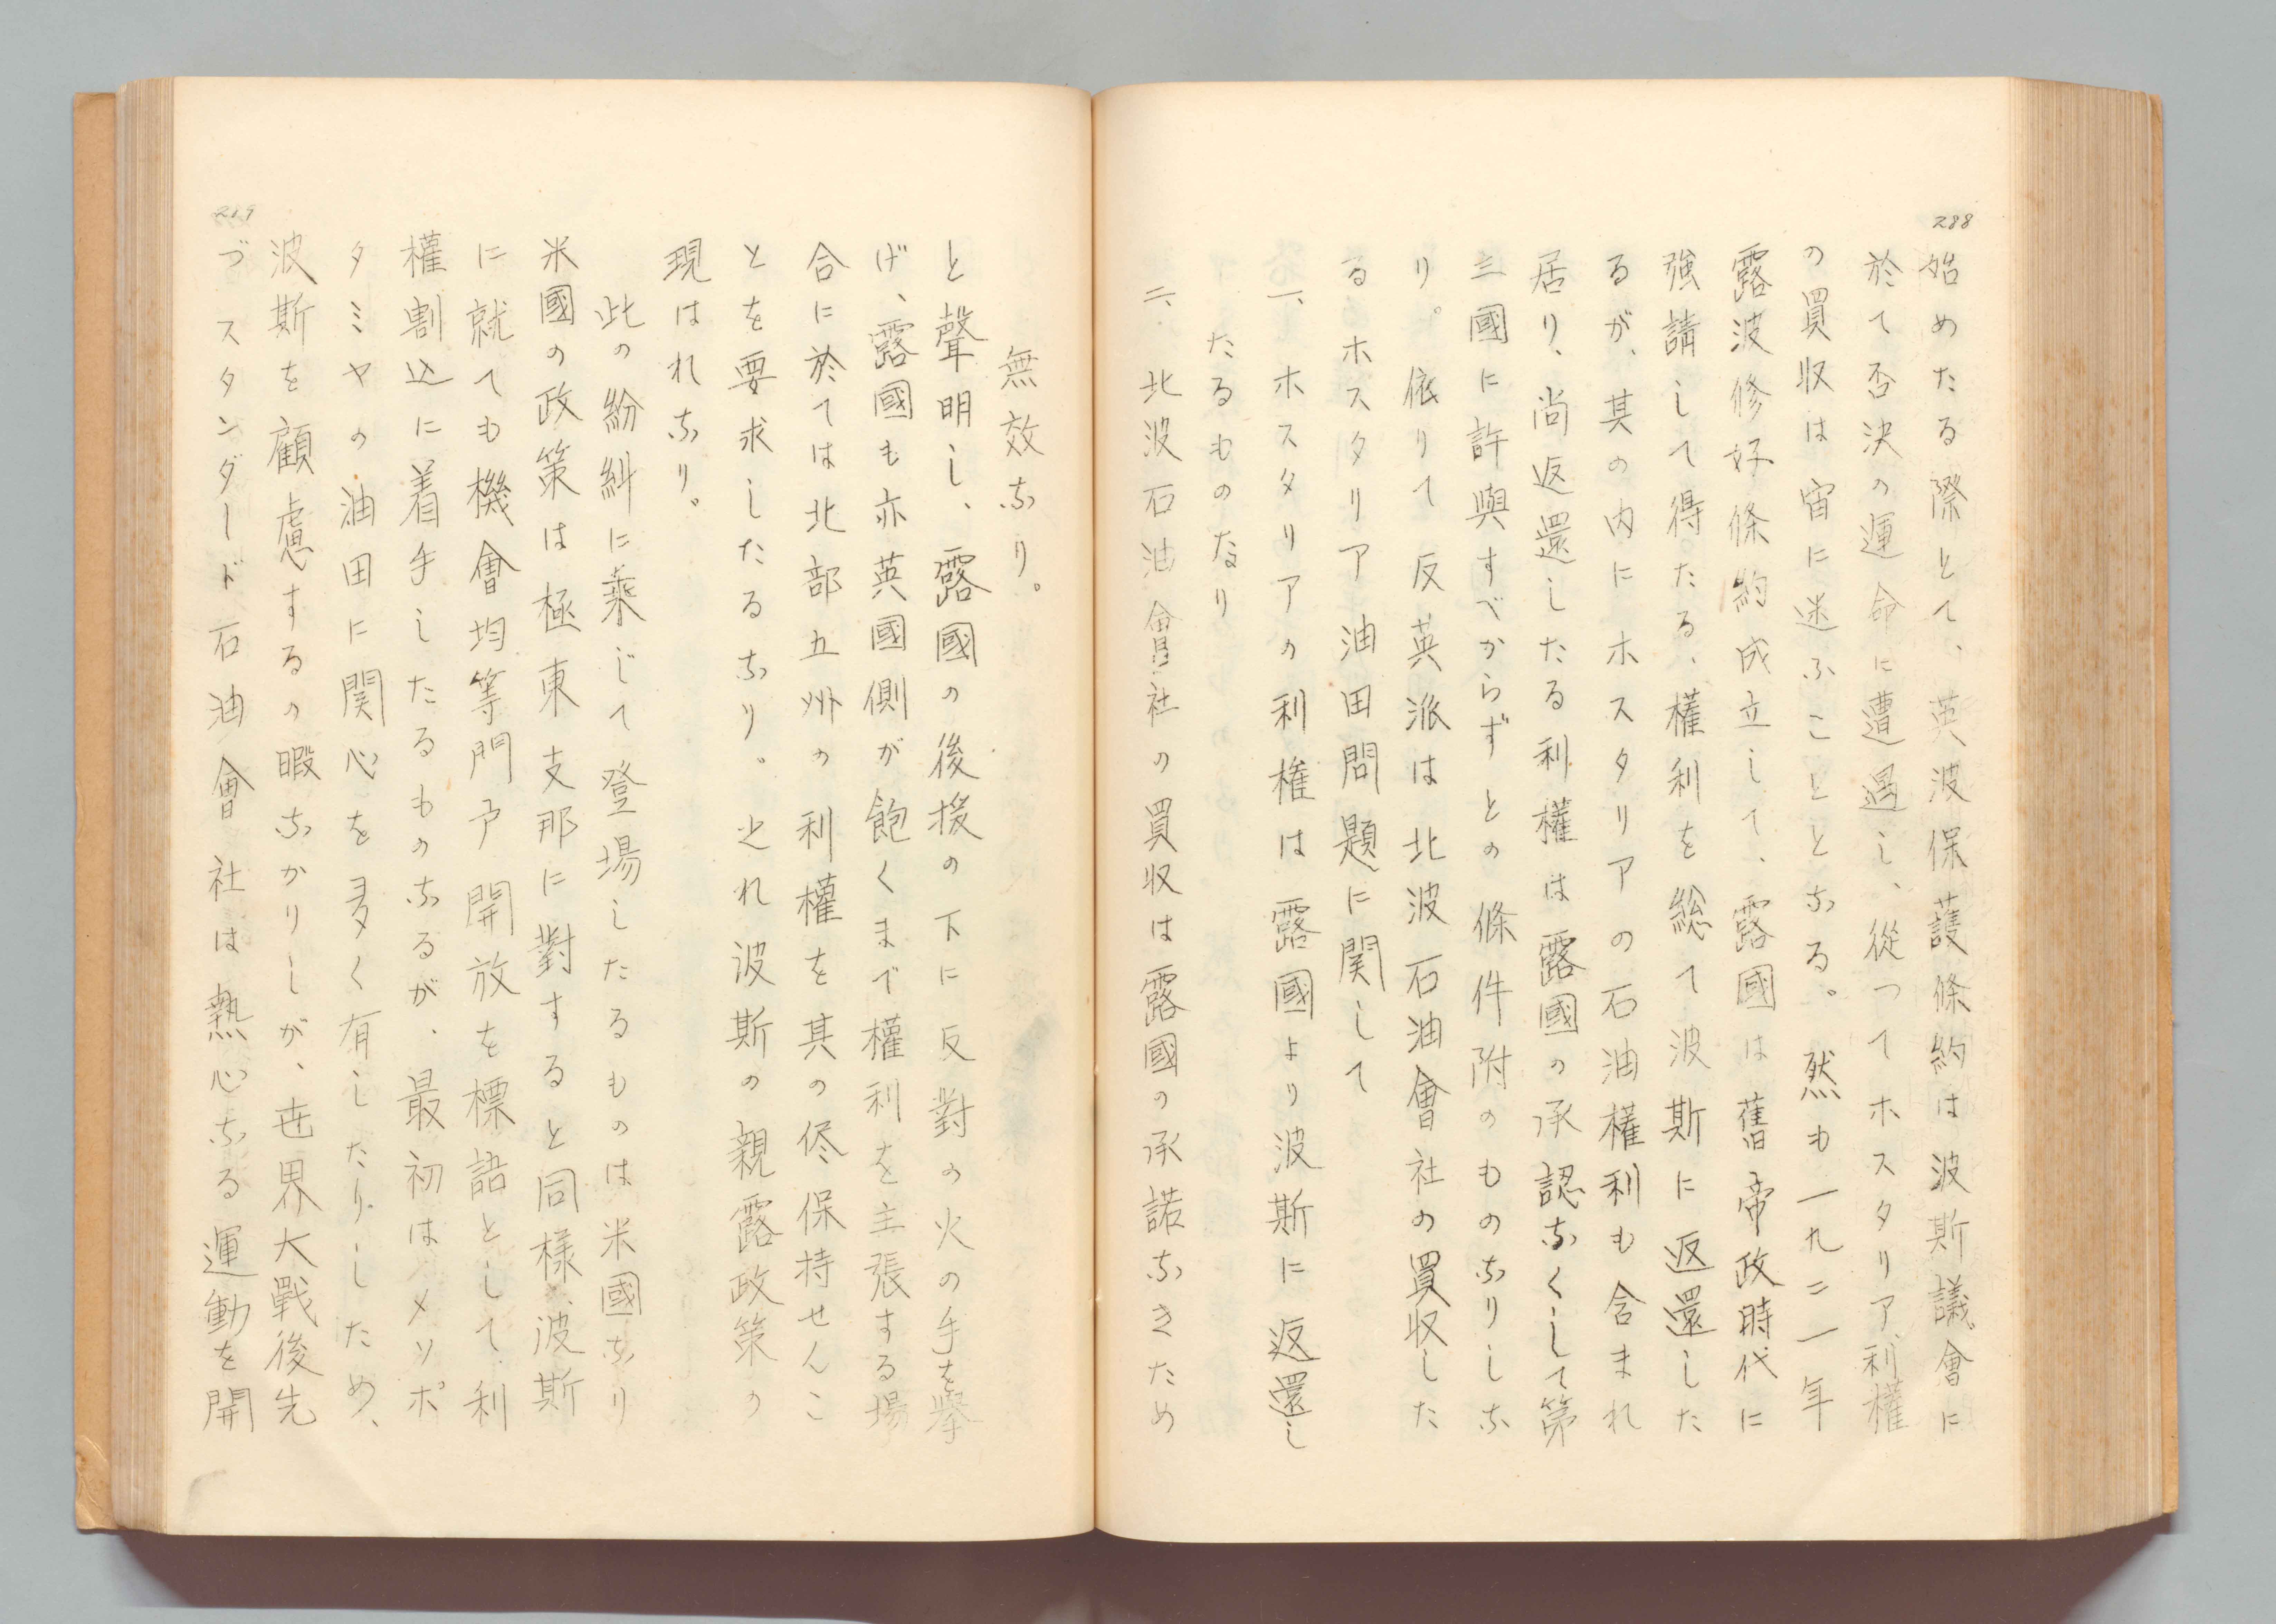 288
始めたる際とて、英波保護條約は波斯議會に
於て否決の運命に遭遇し、從つてホスタリア利權
の買収は宙に迷ふことゝなる。然も一九二一年
露波修好條約成立して、露國は舊帝政時代に
強請して得たる、權利を総て波斯に返還した
るが、其の内にホスタリアの石油權利も含まれ
居り、尚返還したる利權は露國の承認なくして第
三國に許與すべからずとの條件附のものなりしな
り。依りて反英派は北波石油會社の買収した
るホスタリア油田問題に関して
一、ホスタリアの利権は露國より波斯に返還し
たるものなり
二、北波石油會社の買収は露國の承諾なきため
無效なり。
と聲明し、露國の後援の下に反對の火の手を擧
げ、露國も亦英國側が飽くまで權利を主張する場
合に於ては北部五州の利權を其の侭保持せんこ
とを要求したるなり。之れ波斯の親露政策の
現はれなり。
此の紛糾に乘じて登場したるものは米國なり
米國の政策は極東支那に對すると同様、波斯
に就ても機會均等門戸開放を標語として、利
權割込に着手したるものなるが、最初はメソポ
タミヤの油田に関心を多く有したりしため、
波斯を顧慮するの暇なかりしが、世界大戰後先
づスタンダード石油會社は熱心なる運動を開
289